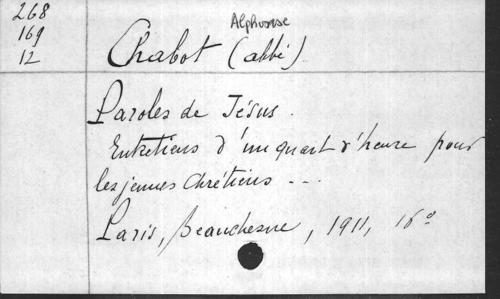 268
169
12
Alphonse
Chabot (abbé).
Paroles de Jésus.
Entretiens d'un quart d'heure pour
les jeunes Chrétiens ---
Paris, Beauchesne, 1911, 16°